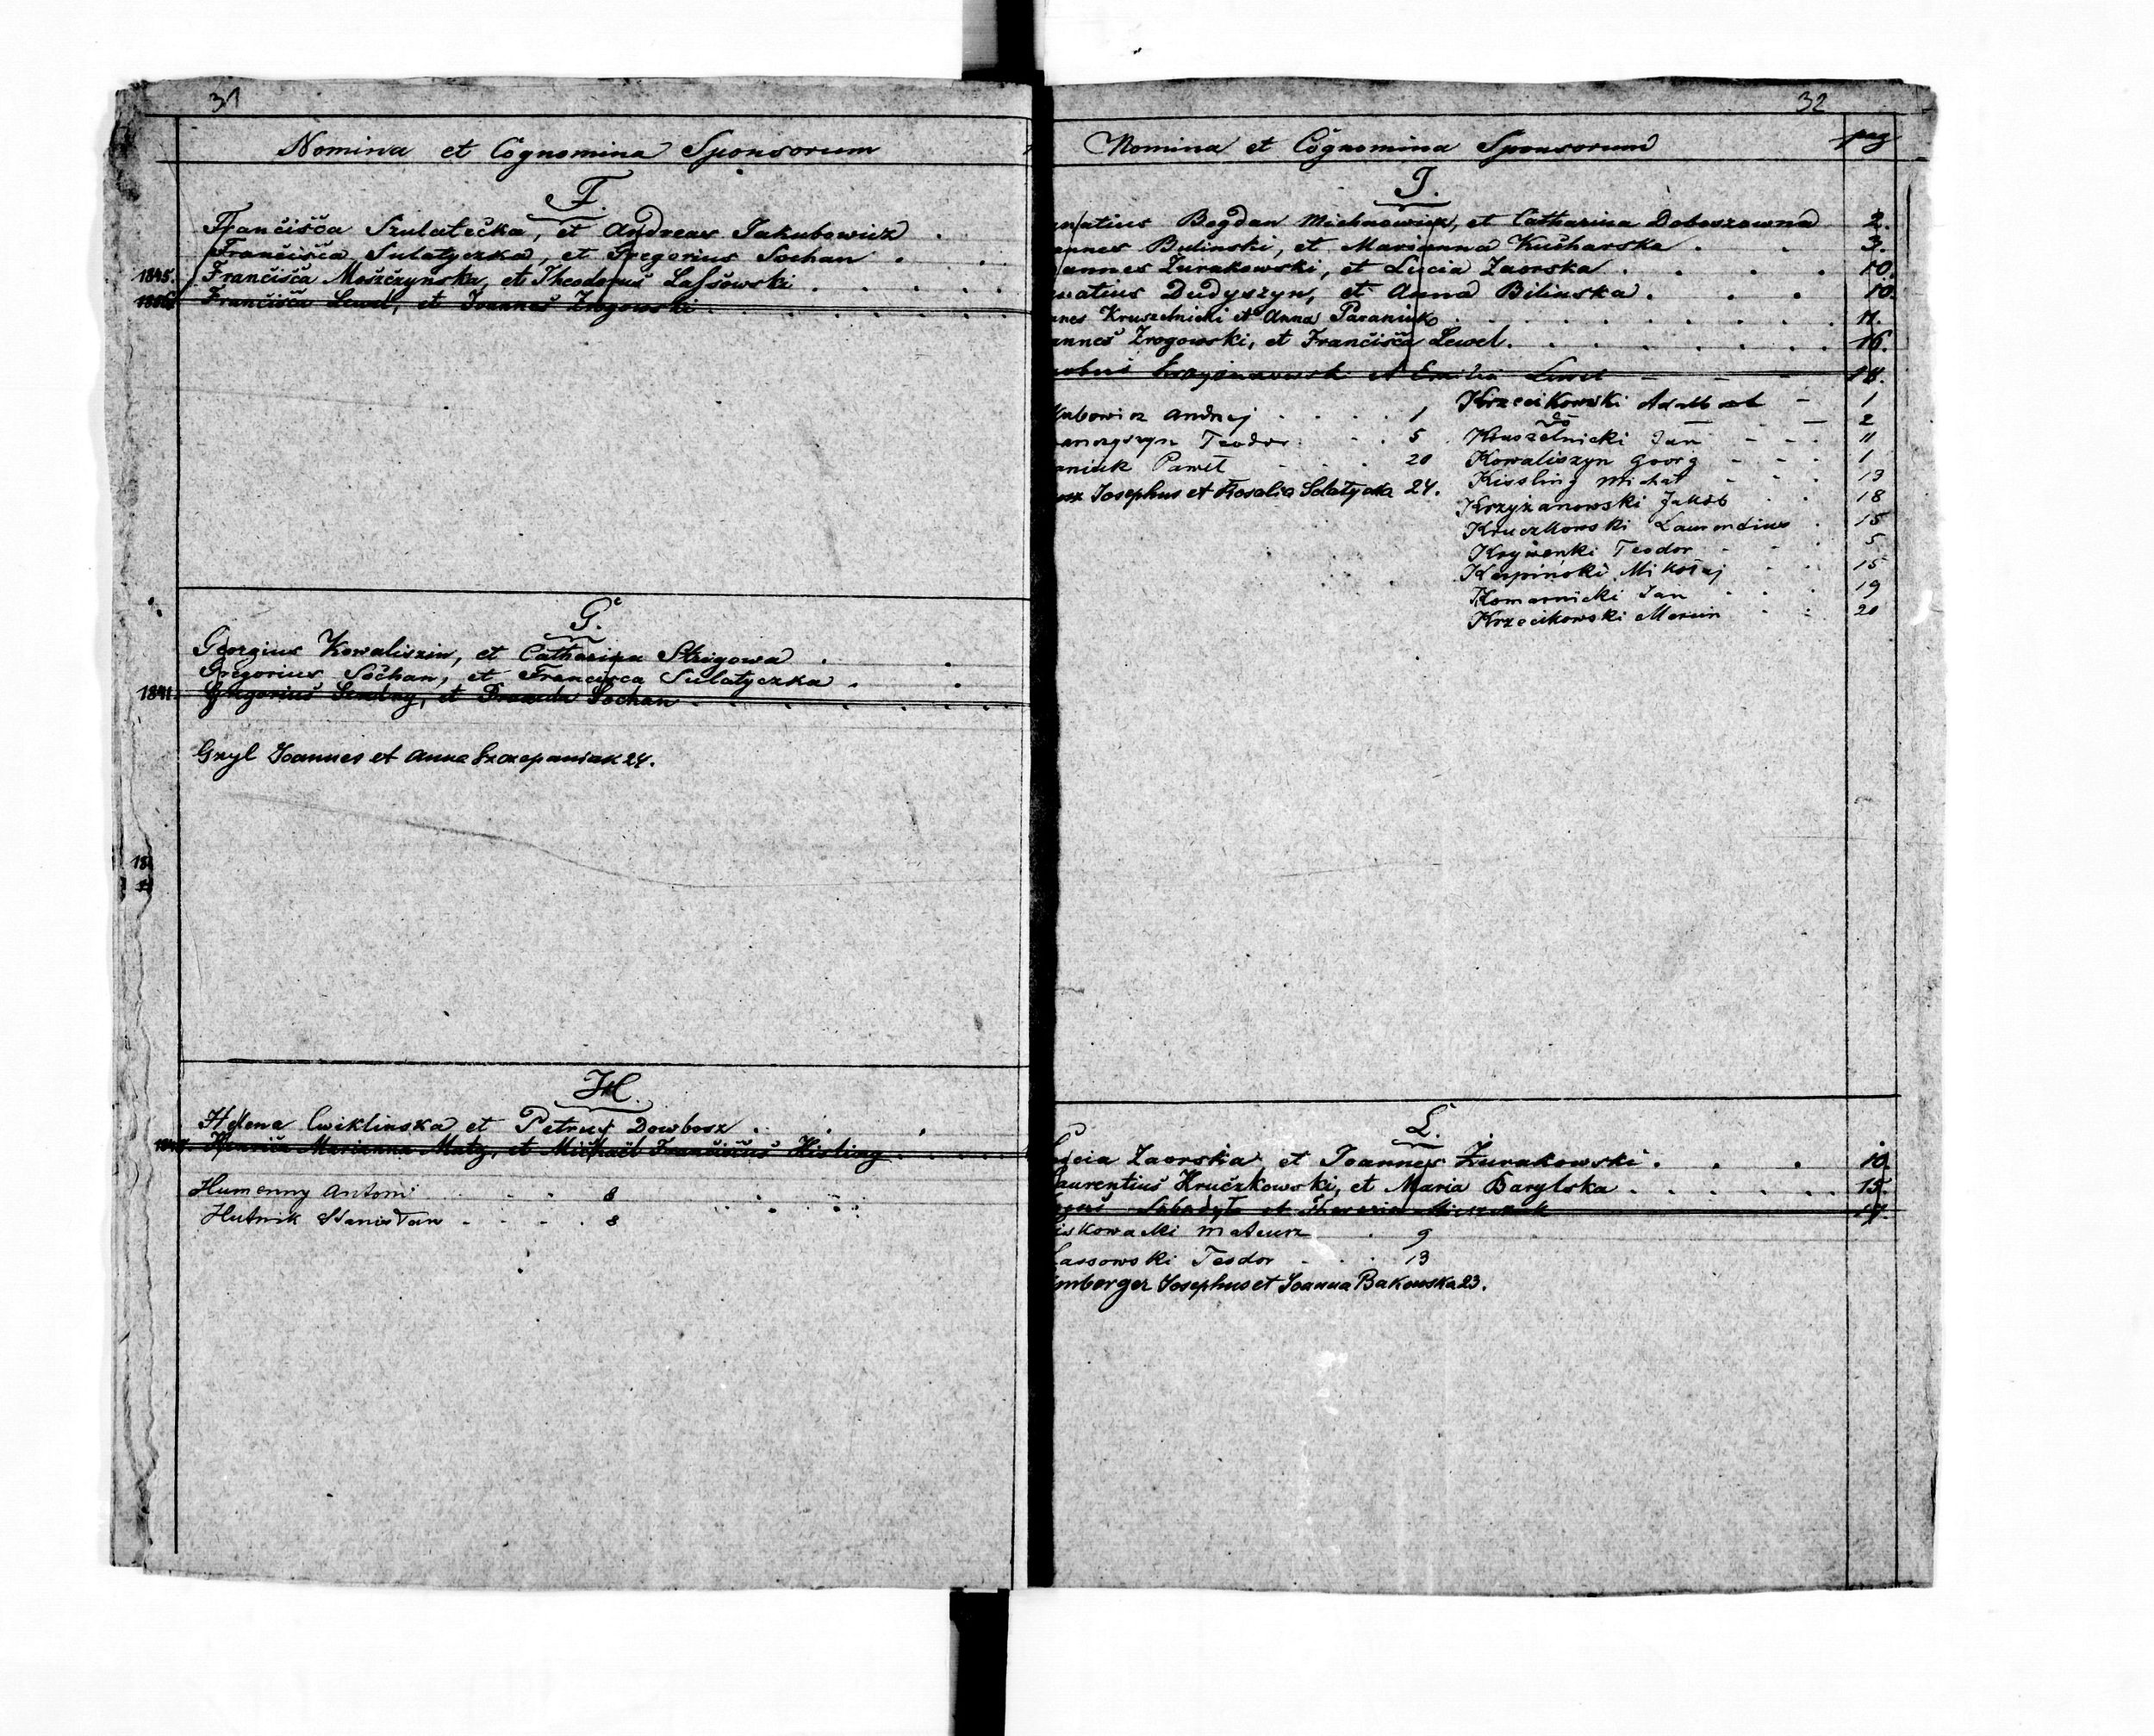 31
Nomina et Cognomina Sponsorum
F.
Francisca Szulatecka, et Andreas Jakubowicz
Francisca Sulatyczka, et Gregorius Sochan
1845. Francisca Moszczynska, et Theodorus Lassowski
Francisca Lewel, et Joannes Zrogowski
G.
Georgius Kowaliszin, et Catharina Strigowa
Gregorius Sochan, et Francisca Sulatyczka
1841. Gregorius et Sochan
Gzyl Joannes et Anna Szczepaniak 24.
18
H.
Helena Cwiklinska et Petrus Dowbosz
Marianna Maty, et Michael Franciscus Kisling
Humenny Antoni 8
Hutnik Stanisław 8
32
Nomina et Cognomina Sponsorum pag
I.
natius Bogdan Michnowicz, et Catharina Doboszowna 2.
annes Bulinski, et Marianna Kucharska 3.
annes Zurakowski, et Lucia Zaorska 10.
natius Dudyszyn, et Anna Bilinska 10.
nnes Kruszelnicki et Anna Paraniuk 11.
annes Zrogowski, et Francisca Lewel 16.
cobus Krzyzanowski et Emilia Lewel 18.
kubowicz Andrzej 1
Teodor 5
aniuk Paweł 20
Josephus et Rosalia Solatycka 24.
Krzecikowski Adalbert 1
do 2
Kruszelnicki Jan 11
Kowaliszyn Georg 1
Kissling Michał 13
Krzyżanowski Jakób 18
Kruczkowski Laurentius 15
Krywenki Teodor 5
Karpiński Mikołaj 15
Komarnicki Jan 19
Krzecikowski Marcin 20
L.
ucia Zaorska, et Joannes Żurakowski 10
aurentius Kruczkowski, et Maria Barylska 15
et Theresia 17.
iskowacki Mateusz 9
Lassowski Teodor 13
mberger Josephus et Joanna Bakowska 23.